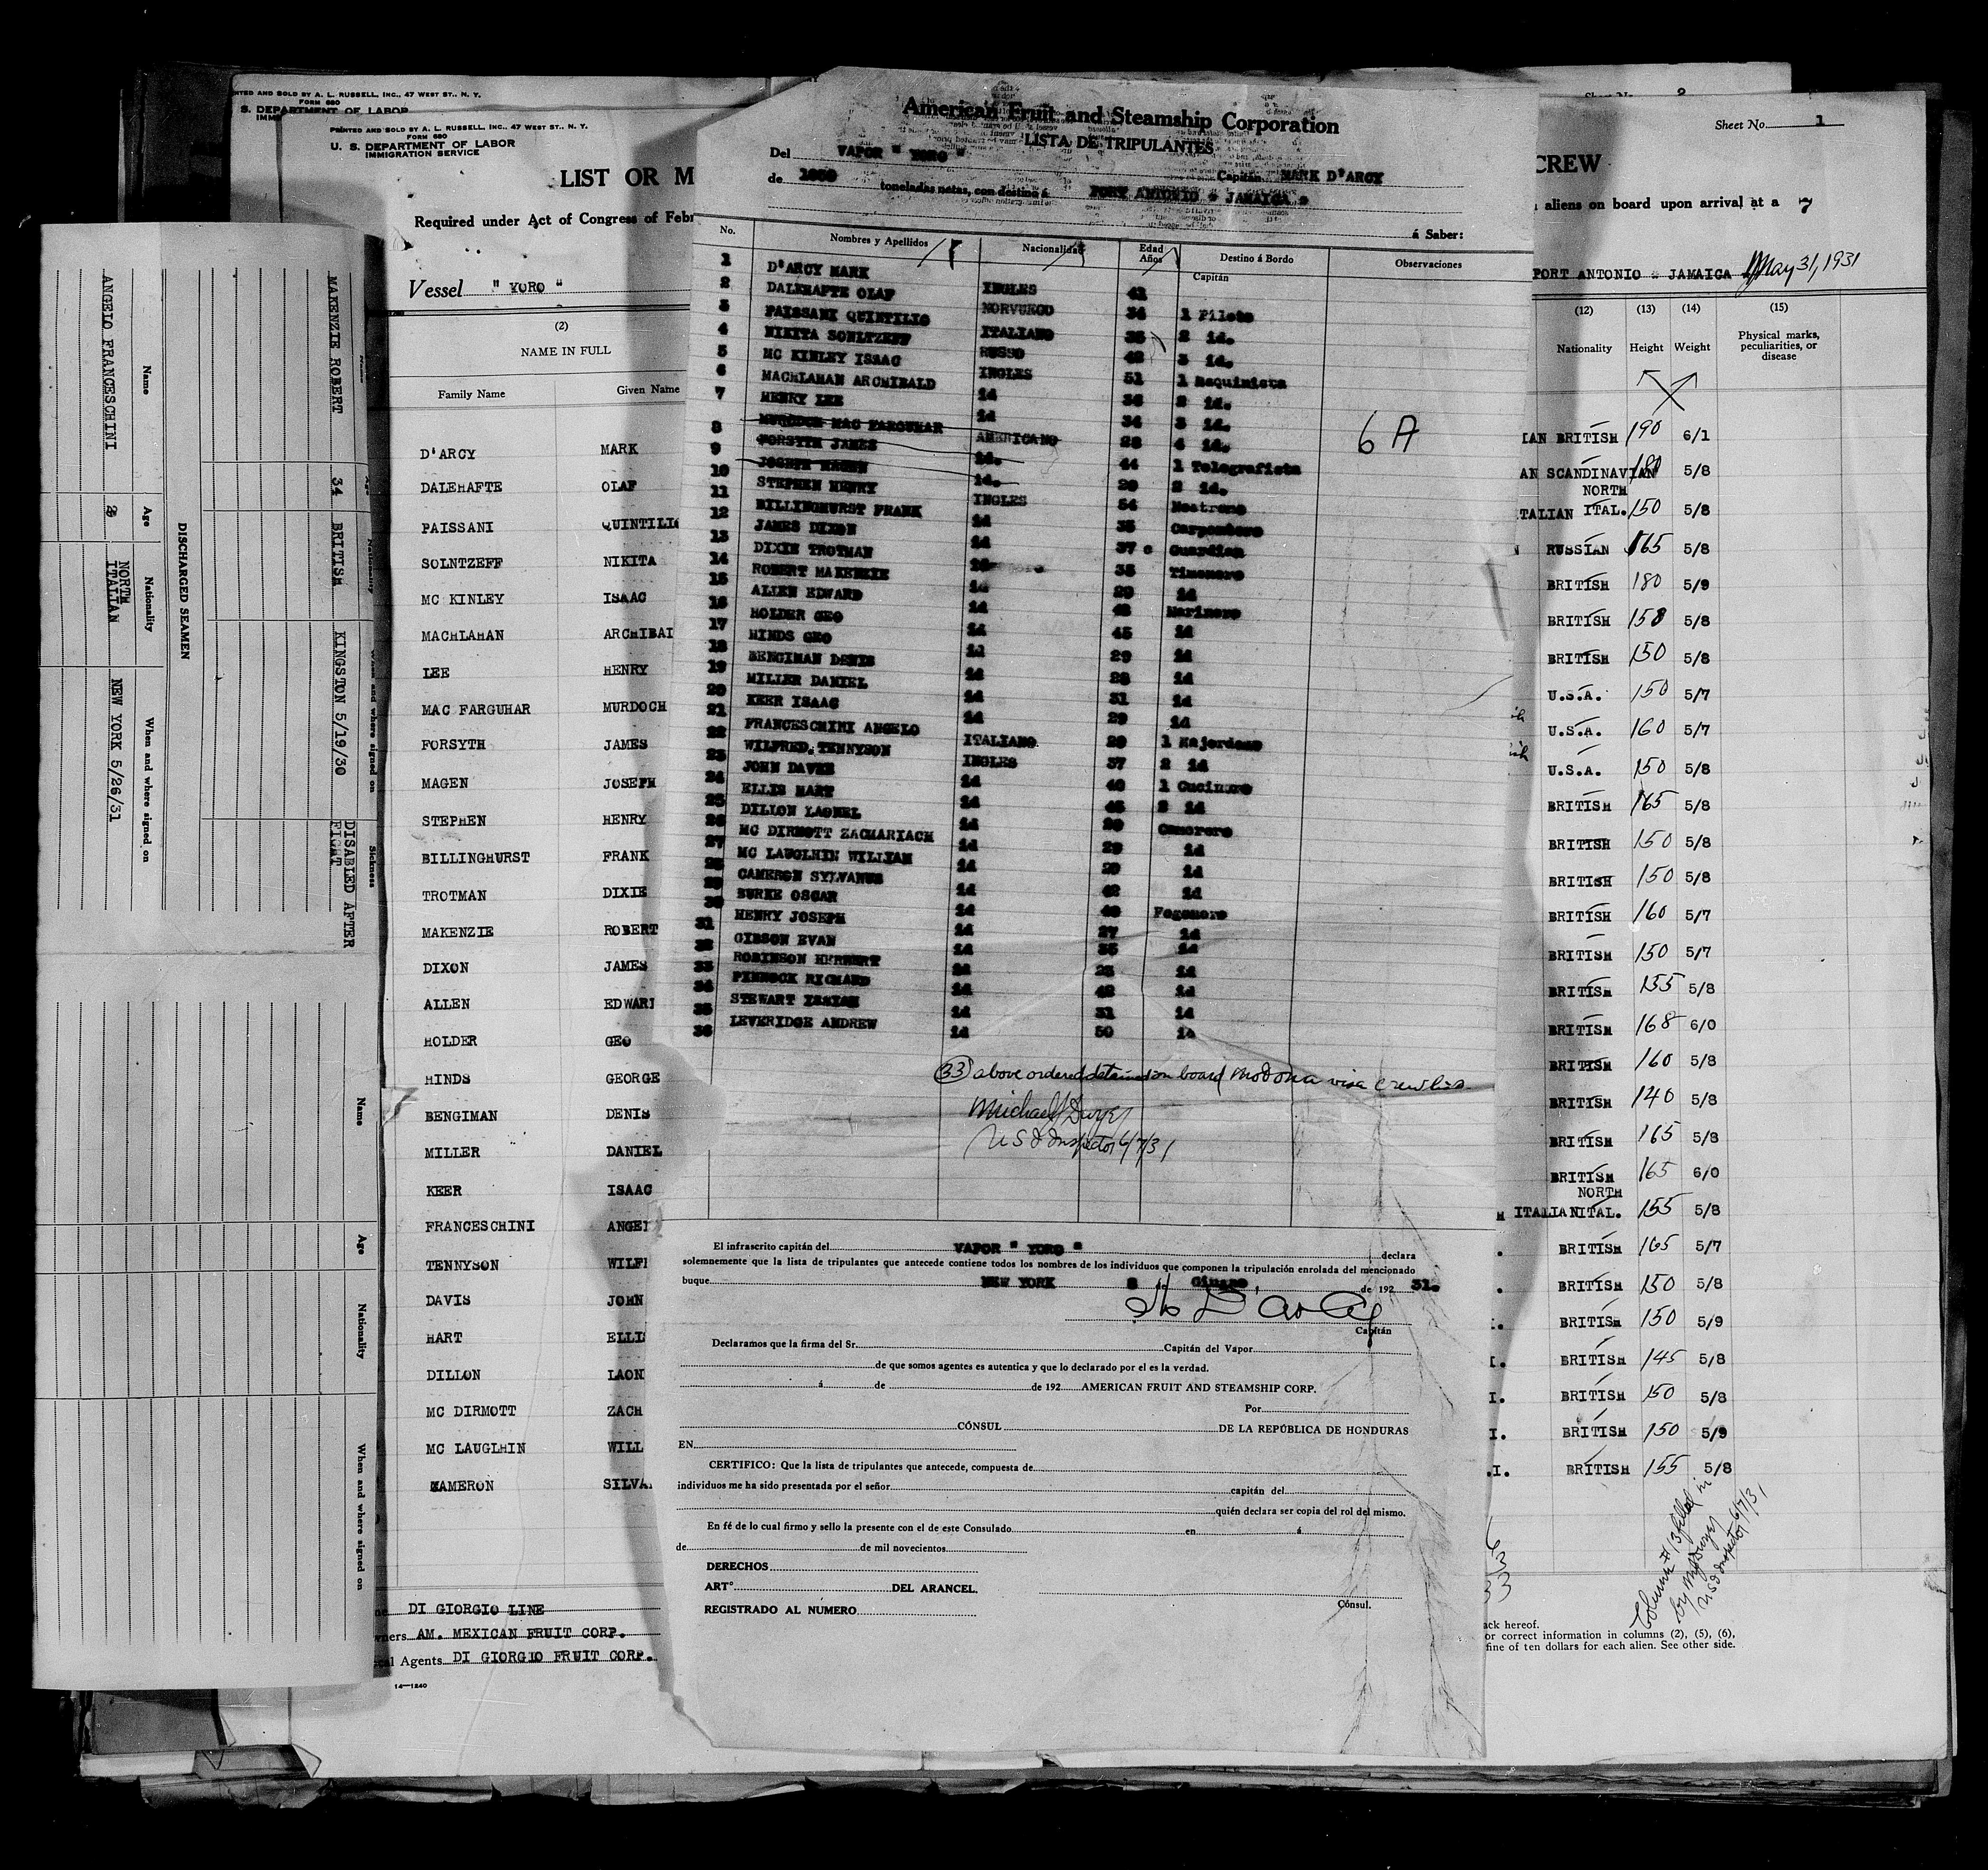 NTED AND SOLD BY A. L. RUSSELL, INC., 47 WEST ST., N. Y.
FORM 680
S. DEPARTMENT OF LABOR
PRINTED AND SOLD BY A. L. RUSSELL, INC., 47 WEST ST., N. Y.
FORM 680
U. S. DEPARTMENT OF LABOR
IMMIGRATION SERVICE
LIST OR M
Required under Act of Congress of Febr
Vessel " YORO "
(2)
NAME IN FULL
Family Name Given Name
D'ARCY MARK
DALEHAFTE OLAF
PAISSANI QUINTILIO
SOLNTZEFF NIKITA
MC KINLEY ISAAC
MACHLAHAN ARCHIBAI
LEE HENRY
MAC FARGUHAR MURDOCH
FORSYTH JAMES
MAGEN JOSEPH
STEPHEN HENRY
BILLINGHURST FRANK
TROTMAN DIXIE
MAKENZIE ROBERT
DIXON JAMES
ALLEN EDWARI
HOLDER GEO
HINDS GEORGE
BENGIMAN DENIS
MILLER DANIEL
KEER ISAAC
FRANCESCHINI ANGEI
TENNYSON WILF
DAVIS JOHN
HART ELLI
DILLON LAON
MC DIRMOTT ZACH
MC LAUGLHIN WILL
KAMERON SILVA
DI GIORGIO LINE
ners AM. MEXICAN FRUIT CORP.
cal Agents DI GIORGIO FRUIT CORP.
14—1240
American Fruit and Steamship Corporation
LISTA DE TRIPULANTES
Del VAPOR " YORO " Capitán MARK D'ARCY
de toneladas netas, con destino á PORT ANTONIO - JAMAICA
á Saber:
No. Nombres y Apellidos Nacionalidad Edad Años Destino á Bordo Observaciones
1 D'ARCY MARK INGLES 41 Capitán
2 DALEHAFTE OLAF NORVUEGO 34 1 Piloto
3 PAISSANI QUINTILIO ITALIANO 35 2 id.
4 NIKITA SONLTZEFF RUSSO 42 3 id.
5 MC KINLEY ISAAC INGLES 51 1 Maquinista
6 MACHLAHAN ARCHIBALD id 36 2 id.
7 HENRY LEE id 34 3 id.
8 MURDOCH MAC FARGUHAR AMERICANO 28 4 id.
9 FORSYTH JAMES id. 44 1 Telegrafista
10 JOSEPH MAGEN id. 29 2 id.
11 STEPHEN HENRY INGLES 54 Nostromo
12 BILLINGHURST FRANK id 35 Carpentero
13 JAMES DIXON id 37 Guardian
14 DIXIE TROTMAN 35 Timonero
15 ROBERT MAKENZIE id 29 id
16 ALLEN EDWARD id 42 Marinero
17 HOLDER GEO id 45 id
18 HINDS GEO id 29 id
19 BENGIMAN DENIS id 28 id
20 MILLER DANIEL id 31 id
21 KEER ISAAC id 29 id
22 FRANCESCHINI ANGELO ITALIANO 29 1 Majordomo
23 WILFRED TENNYSON INGLES 37 2 id
24 JOHN DAVEE id 40 1 Cucinero
25 ELLIS HART id 45 2 id
26 DILLON LAONEL id 20 Camorero
27 MC DIRMOTT ZACHARIACH id 29 id
28 MC LAUGLHIN WILLIAM id 29 id
29 CAMERON SYLVANUS id 42 Fogonero
30 BURKE OSCAR id 40 id
31 HENRY JOSEPH id 27 id
32 GIBSON EVAN id 35 id
33 ROBINSON HERBERT id 25 id
34 PINNOCK RICHARD id 42 id
35 STEWART ISAIAH id 31 id
36 LEVERIDGE ANDREW id 50 id
6 A
33 above ordered detained on board visa crew list
Michael J Dwyer
U S I Inspector 6/7/31
El infrascrito capitán del VAPOR " YORO " declara
solemnemente que la lista de tripulantes que antecede contiene todos los nombres de los individuos que componen la tripulación enrolada del mencionado
buque NEW YORK 8 Giugno de 192 31.
M D'Arcy
Capitán
Declaramos que la firma del Sr. Capitán del Vapor
de que somos agentes es autentica y que lo declarado por el es la verdad.
á de de 192 AMERICAN FRUIT AND STEAMSHIP CORP.
Por
CÓNSUL DE LA REPÚBLICA DE HONDURAS
EN
CERTIFICO: Que la lista de tripulantes que antecede, compuesta de
individuos me ha sido presentada por el señor capitán del
quién declara ser copia del rol del mismo.
En fé de lo cual firmo y sello la presente con el de este Consulado en á
de de mil novecientos
DERECHOS
ART° DEL ARANCEL.
REGISTRADO AL NÚMERO
Cónsul.
Sheet No. 1
CREW
aliens on board upon arrival at a 7
PORT ANTONIO - JAMAICA May 31, 1931
(12) (13) (14) (15)
Nationality Height Weight Physical marks, peculiarities, or disease
IAN BRITISH 190 6/1
AN SCANDINAVIAN 180 5/8
TALIAN NORTH ITAL. 150 5/8
N RUSSIAN 165 5/8
BRITISH 180 5/9
BRITISH 158 5/8
BRITISH 150 5/8
U.S.A. 150 5/7
U.S.A. 160 5/7
U.S.A. 150 5/8
BRITISH 165 5/8
BRITISH 150 5/8
BRITISH 150 5/8
BRITISH 160 5/7
BRITISH 150 5/7
BRITISH 155 5/8
BRITISH 168 6/0
BRITISH 160 5/8
BRITISH 140 5/8
BRITISH 165 5/8
BRITISH 165 6/0
H ITALIAN NORTH ITAL. 155 5/8
. BRITISH 165 5/7
. BRITISH 150 5/8
I. BRITISH 150 5/9
I. BRITISH 145 5/8
I. BRITISH 150 5/8
I. BRITISH 150 5/9
.I. BRITISH 155 5/8
Column #13 filled in
by M J Dwyer
U S I Inspector 6/7/31
6
3
33
ack hereof.
or correct information in columns (2), (5), (6),
fine of ten dollars for each alien. See other side.
DISCHARGED SEAMEN
Name Age Nationality When and where signed on
ANGELO FRANCESCHINI NORTH ITALIAN NEW YORK 5/26/31
MAKENZIE ROBERT 34 BRITISH KINGSTON 5/19/30 DISABLED AFTER FIGHT
Sickness
Name Age Nationality When and where signed on